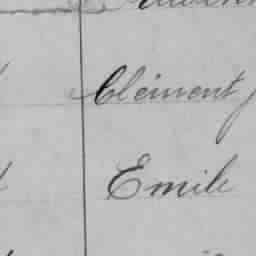 Clément
Emile